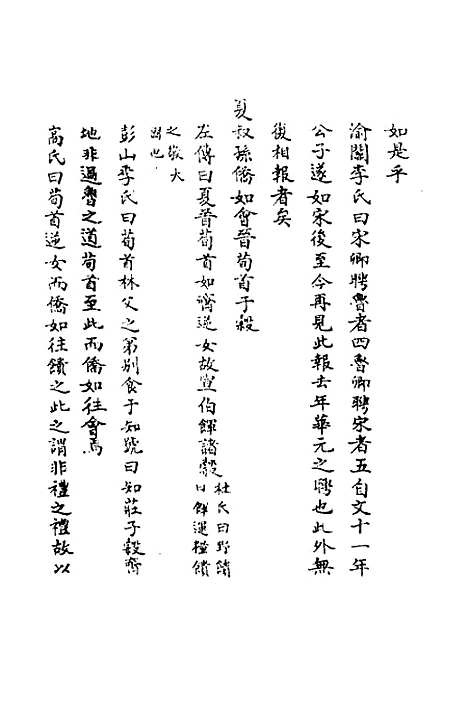 如是乎
渝關李氏曰宋卿聘魯者四魯卿聘宋者五自文十一年
公子遂如宋後至今再見此報去年華元之聘也此外無
復相報者矣
夏叔孫僑如會晉荀首于穀
左傳曰夏晉荀首如齊逆女故宣伯餫諸穀
杜氏曰野饋
曰餫運糧饋
之敬大
國也
彭山季氏曰荀首林父之弟別食于知號曰知莊子穀齊
地非過魯之道荀首至此而僑如往會焉
高氏曰荀首逆女而僑如往饋之此之謂非禮之禮故以